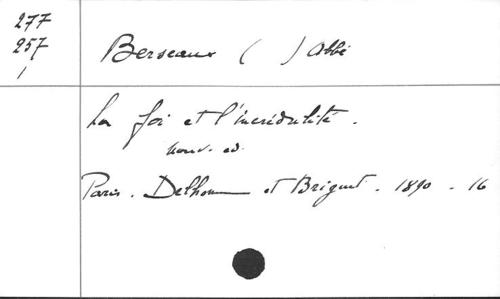 277
257
1
Berseaux ( ) Abbé
La foi et l'incrédulité.
nouv. ed.
Paris. Delhomme et Briguet. 1890. 16